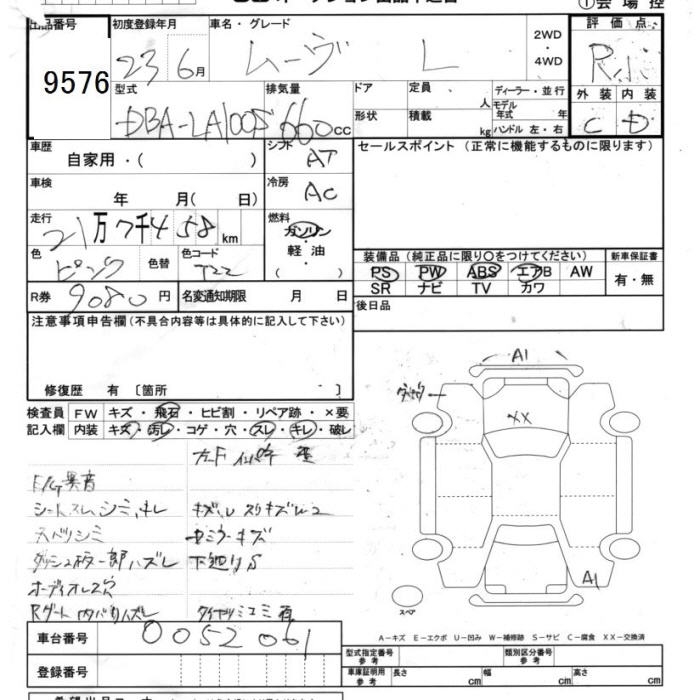 出品番号 初度登録年月 車名・グレード 2WD ・ 4WD 評価点
9576 23 6月 ムーヴ L
型式 排気量 ドア 定員 人 ディーラー・並行 外装 内装
DBA-LA100S 660cc 形状 積載 kg モデル年式 年 ハンドル 左・右 C D
車歴 自家用・( ) シフト AT セールスポイント (正常に機能するものに限ります)
車検 年 月( 日) 冷房 AC
走行 21万7千458km 燃料 ガソリン
軽油
( )
色 ピンク 色替 色コード T22
装備品 (純正品に限り〇をつけてください) 新車保証書
PS PW ABS エアB AW 有・無
SR ナビ TV カワ
R券 9080円 名変通知期限 月 日 後日品
注意事項申告欄 (不具合内容等は具体的に記入して下さい)
修復歴 有 〔箇所 〕
検査員 FW キズ・飛石・ヒビ割・リペア跡・×要
記入欄 内装 キズ・汚レ・コゲ・穴・スレ・キレ・破レ
A1
XX
A1
スペア
E/G異音
シートスレ、シミ、キレ
天バリシミ
ダッシュ板一部ハズレ 下廻りS
オーディオレス穴
Rゲート内バリハズレ
A−キズ E−エクボ U−凹み W−補修跡 S−サビ C−腐食 XX−交換済
車台番号 0052061
型式指定番号 参考 類別区分番号 参考
登録番号 車庫証明用 参考 長さ 幅 高さ cm cm cm